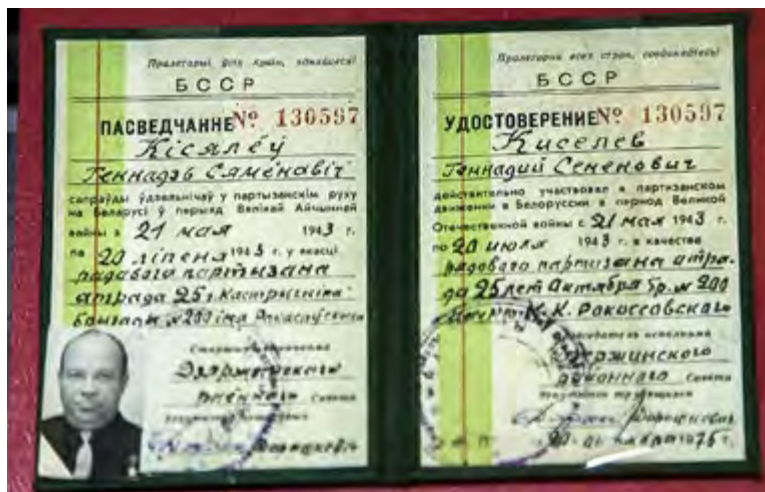 Пралетарыі ўсіх краін, яднайцеся!
БССР
ПАСВЕДЧАННЕ № 130597
Кісялёў
Генадзь Сямёнавіч
сапраўды ўдзельнічаў у партызанскім руху
на Беларусі ў перыяд Вялікай Айчыннай
вайны з 21 мая 1943 г.
па 20 ліпеня 1943 г. у якасці
радавога партызана
атрада 25 г. Кастрычніка
брыгады № 200 імя Ракасоўскага
Старшыня выканкома
Дзяржынскага
Савета
Пролетарии всех стран, соединяйтесь!
БССР
УДОСТОВЕРЕНИЕ № 130597
Киселев
Геннадий Семенович
действительно участвовал в партизанском
движении в Белоруссии в период Великой
Отечественной войны с 21 мая 1943 г.
по 20 июля 1943 г. в качестве
рядового партизана отря-
да 25 лет Октября бр. № 200
К. К. Рокоссовского
Председатель исполкома
Дзержинского
районного Совета
депутатов трудящихся
1976 г.